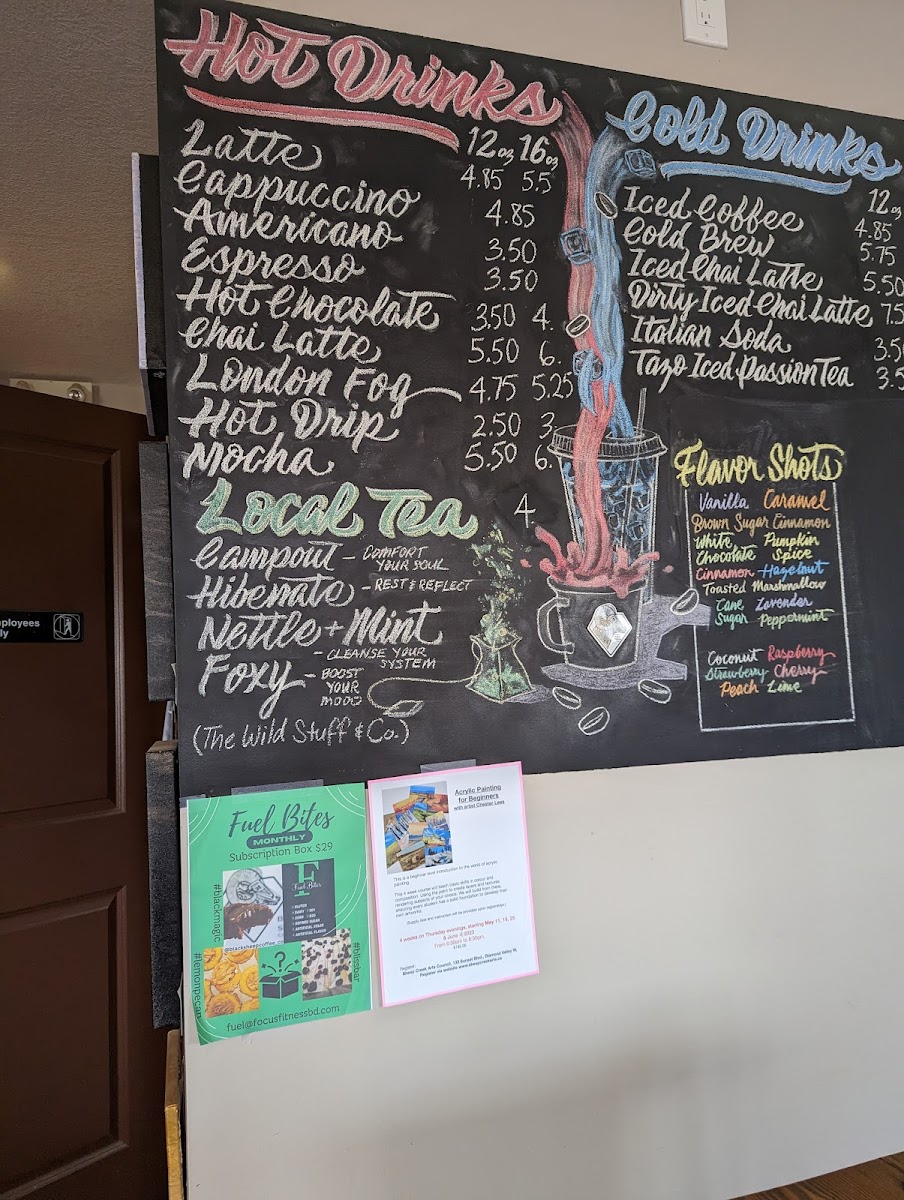 Hot Drinks
12oz 16oz
Latte 4.85 5.5
Cappuccino 4.85
Americano 3.50
Espresso 3.50
Hot Chocolate 3.50 4.
Chai Latte 5.50 6.
London Fog 4.75 5.25
Hot Drip 2.50 3.
Mocha 5.50 6.
Local Tea 4.
Campout - COMFORT
YOUR SOUL
Hibernate - REST & REFLECT
Nettle + Mint
- CLEANSE YOUR
SYSTEM
Foxy - BOOST
YOUR
MOOD
(The Wild Stuff & Co.)
Cold Drinks
12oz
Iced Coffee 4.85
Cold Brew 5.75
Iced Chai Latte 5.50
Dirty Iced Chai Latte 7.5
Italian Soda 3.5
Tazo Iced Passion Tea 3.5
Flavor Shots
Vanilla Caramel
Brown Sugar Cinnamon
White Pumpkin
Chocolate Spice
Cinnamon Hazelnut
Toasted Marshmallow
Cane Lavender
Sugar Peppermint
Coconut Raspberry
Strawberry Cherry
Peach Lime
ployees
ly
Fuel Bites
MONTHLY
Subscription Box $29
#blackmagic
F
Fuel Bites
@blacksheepcoffee
#lemonpecan
#blissbar
?
fuel@focusfitnessbd.com
Acrylic Painting
for Beginners
with artist Chester Lees
This is a beginner level introduction to the world of acrylic
painting.
4 weeks on Thursday evenings, starting May 11, 18, 25
& June 1, 2023
From 6:30pm to 8:30pm.
Register:
Sheep Creek Arts Council, 133 Sunset Blvd., Diamond Valley
Register via website www.sheepcreekarts.ca